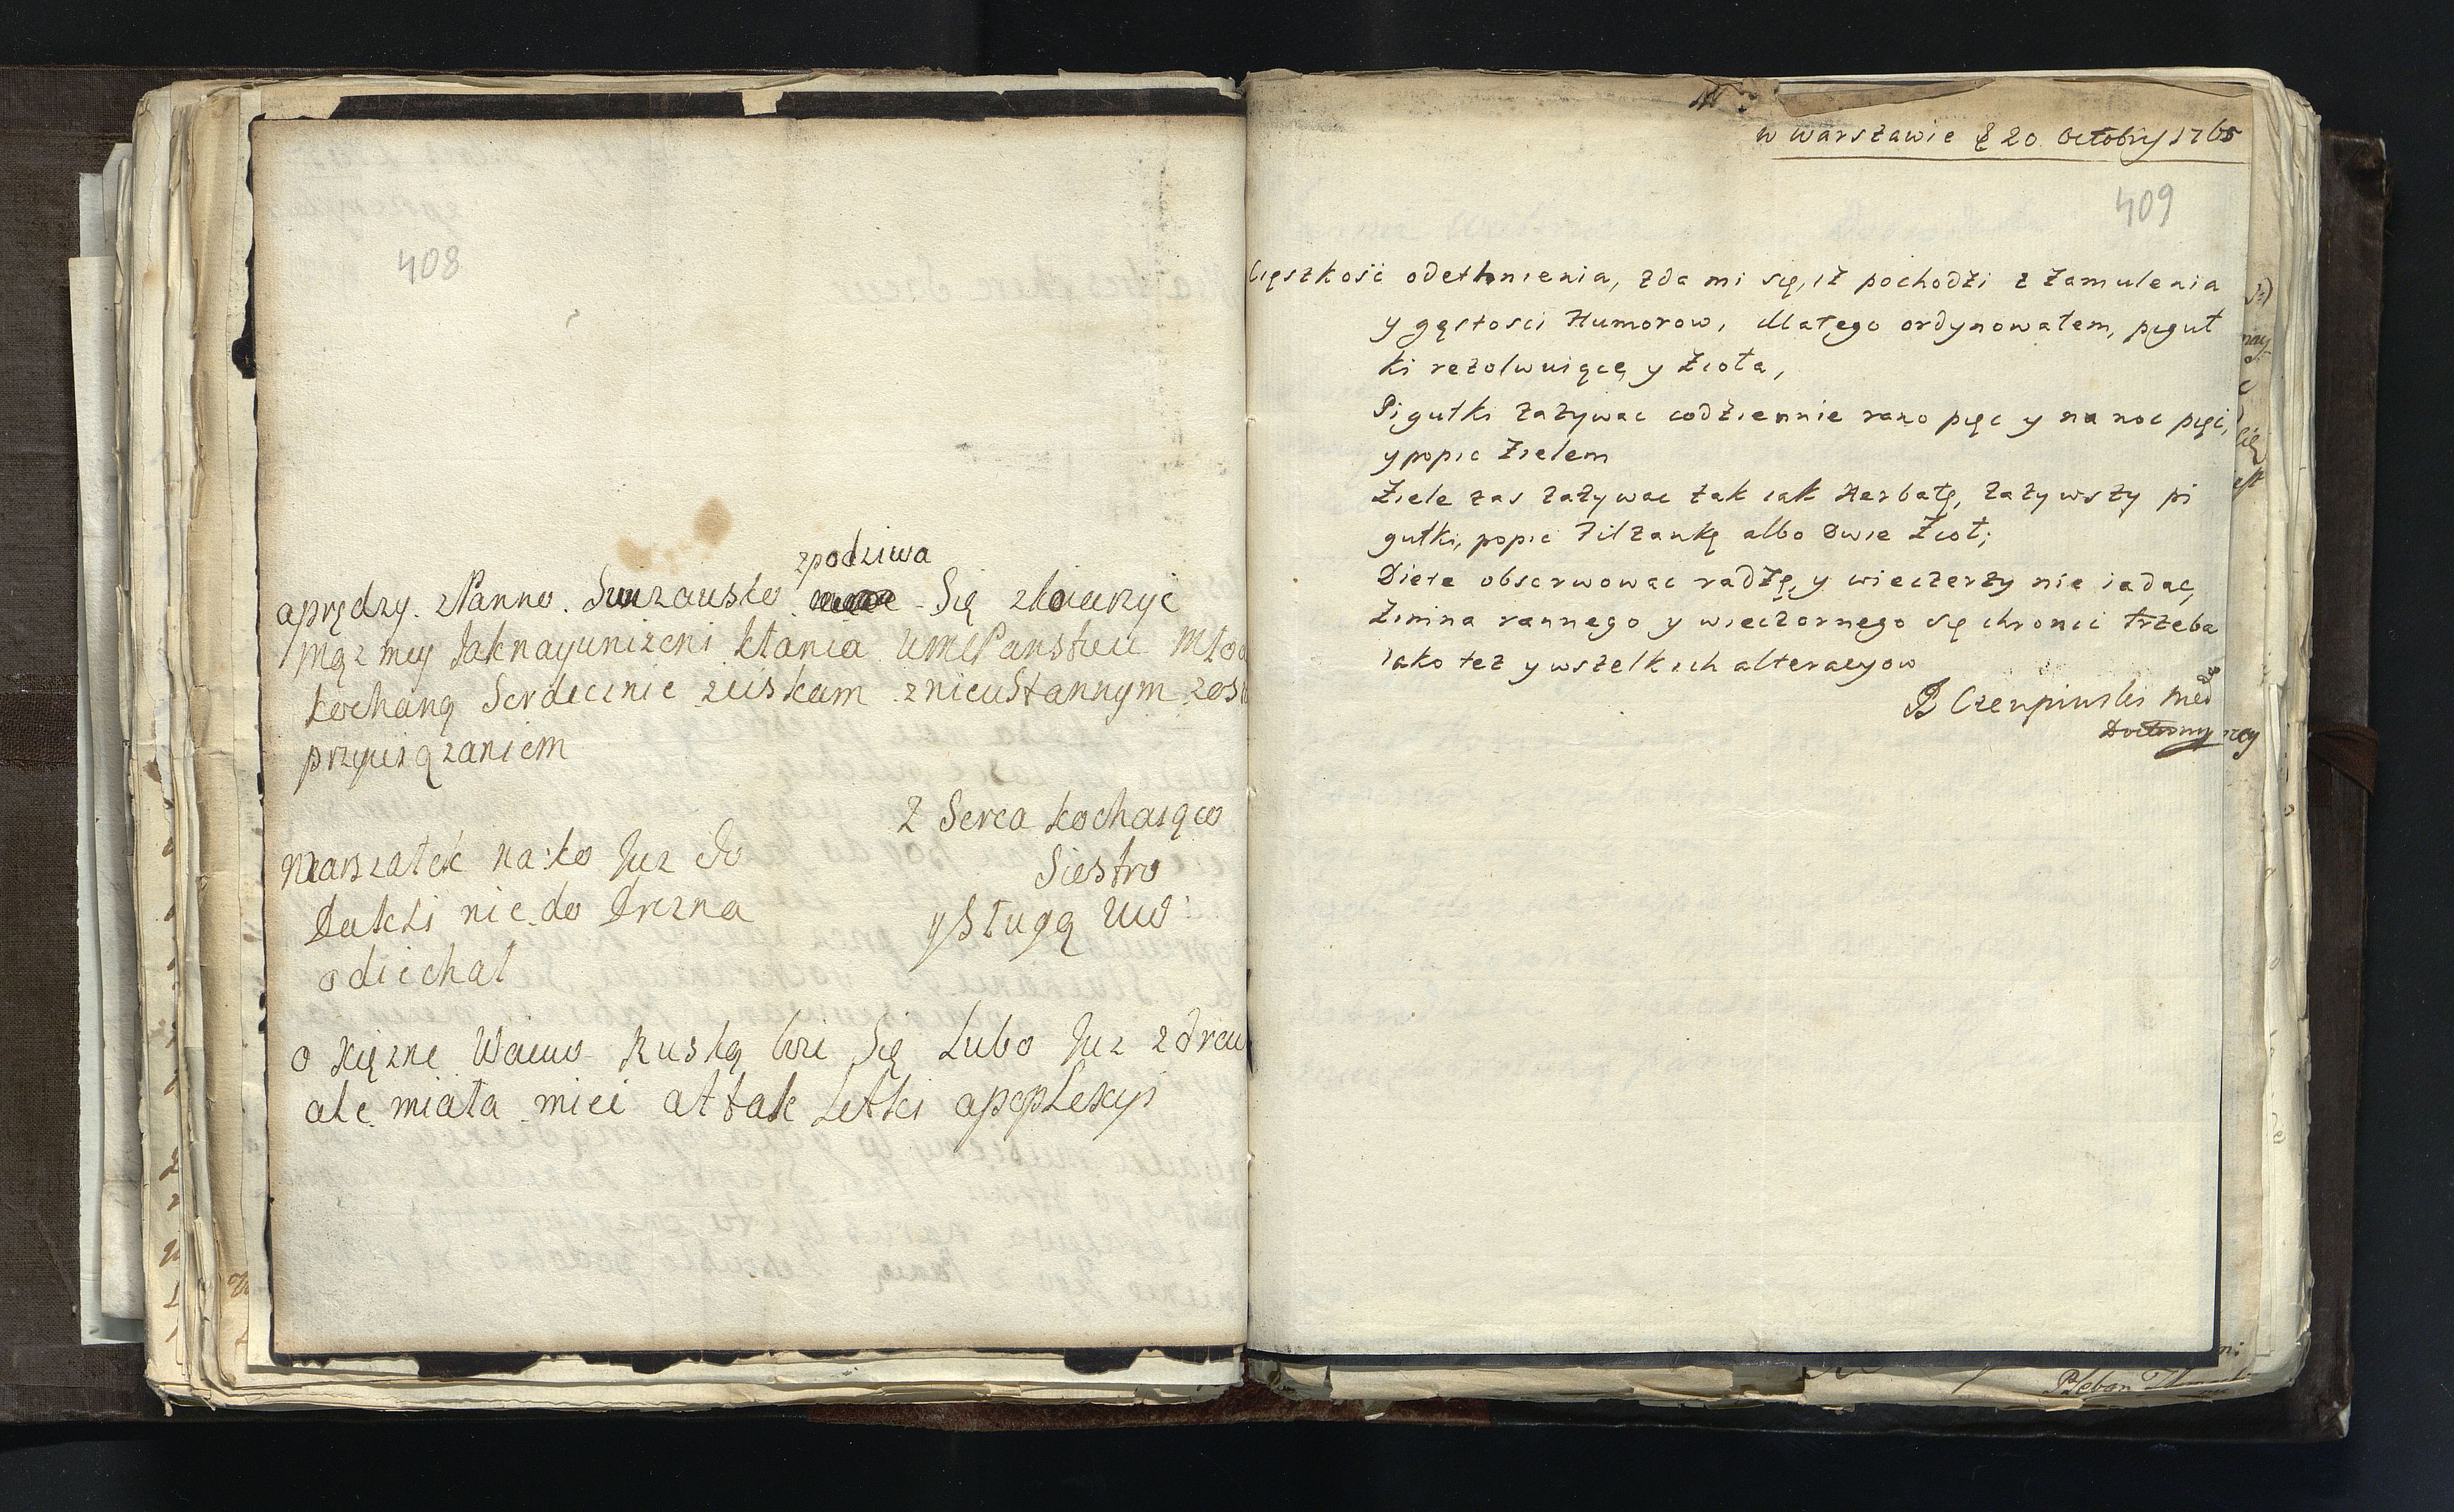 408
zpodziwa
aprędzy. zPanno. Się zkoiarzyć
Mąz moy Jaknayunizeni kłania UMCPanstwu
kochaną Serdecznie zciskam znieustannym
przywiązaniem
Z Serca kochaiąco
Siestro
y Sługą
Marszałek na:ko Juz do
Dukli nie do Drezna
odiechał
o Xięzne Waiwo Ruską boie Się Lubo Juz
ale miała miec attak Letki apoplexyi
w warszawie 20 Octobry 1765
409
Cięszkość odethnienia, zda mi się, iż pochodzi z zamulenia
y gęstosci Humorow, dlatego ordynowałem, piguł
ki rezolwuiące y Zioła,
Pigułki zazywac codziennie rano pięc y na noc pięć,
y popic Zielem
Ziele zas zazywac tak iak Herbatę, zazywszy pi
gułki, popic Filzankę albo Dwie Zioł;
Diete obserwowac radzę, y wieczerzy nie iadac,
Zimna rannego y wieczornego się chronic trzeba
iako tez y wszelkich alteracyow
Czenpinski Med